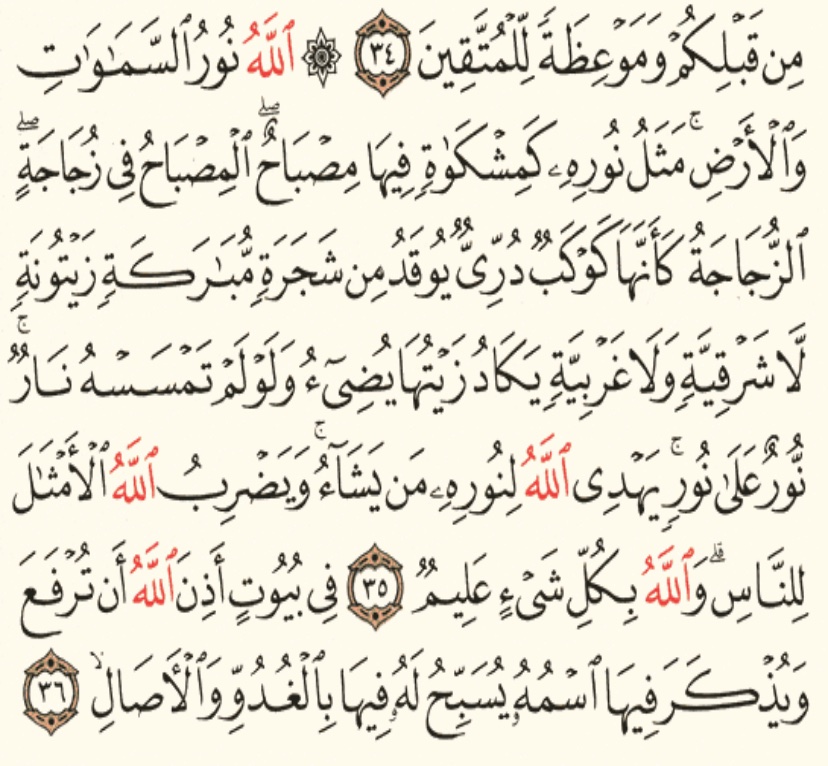 مِن قَبْلِكُمْ وَمَوْعِظَةً لِّلْمُتَّقِينَ ٣٤ ۞ ٱللَّهُ نُورُ ٱلسَّمَٰوَٰتِ
وَٱلْأَرْضِ ۚ مَثَلُ نُورِهِۦ كَمِشْكَوٰةٍ فِيهَا مِصْبَاحٌ ۖ ٱلْمِصْبَاحُ فِى زُجَاجَةٍ ۖ
ٱلزُّجَاجَةُ كَأَنَّهَا كَوْكَبٌ دُرِّىٌّ يُوقَدُ مِن شَجَرَةٍ مُّبَٰرَكَةٍ زَيْتُونَةٍ
لَّا شَرْقِيَّةٍ وَلَا غَرْبِيَّةٍ يَكَادُ زَيْتُهَا يُضِىٓءُ وَلَوْ لَمْ تَمْسَسْهُ نَارٌ ۚ
نُّورٌ عَلَىٰ نُورٍ ۗ يَهْدِى ٱللَّهُ لِنُورِهِۦ مَن يَشَآءُ ۚ وَيَضْرِبُ ٱللَّهُ ٱلْأَمْثَٰلَ
لِلنَّاسِ ۗ وَٱللَّهُ بِكُلِّ شَىْءٍ عَلِيمٌ ٣٥ فِى بُيُوتٍ أَذِنَ ٱللَّهُ أَن تُرْفَعَ
وَيُذْكَرَ فِيهَا ٱسْمُهُۥ يُسَبِّحُ لَهُۥ فِيهَا بِٱلْغُدُوِّ وَٱلْءَاصَالِ ٣٦